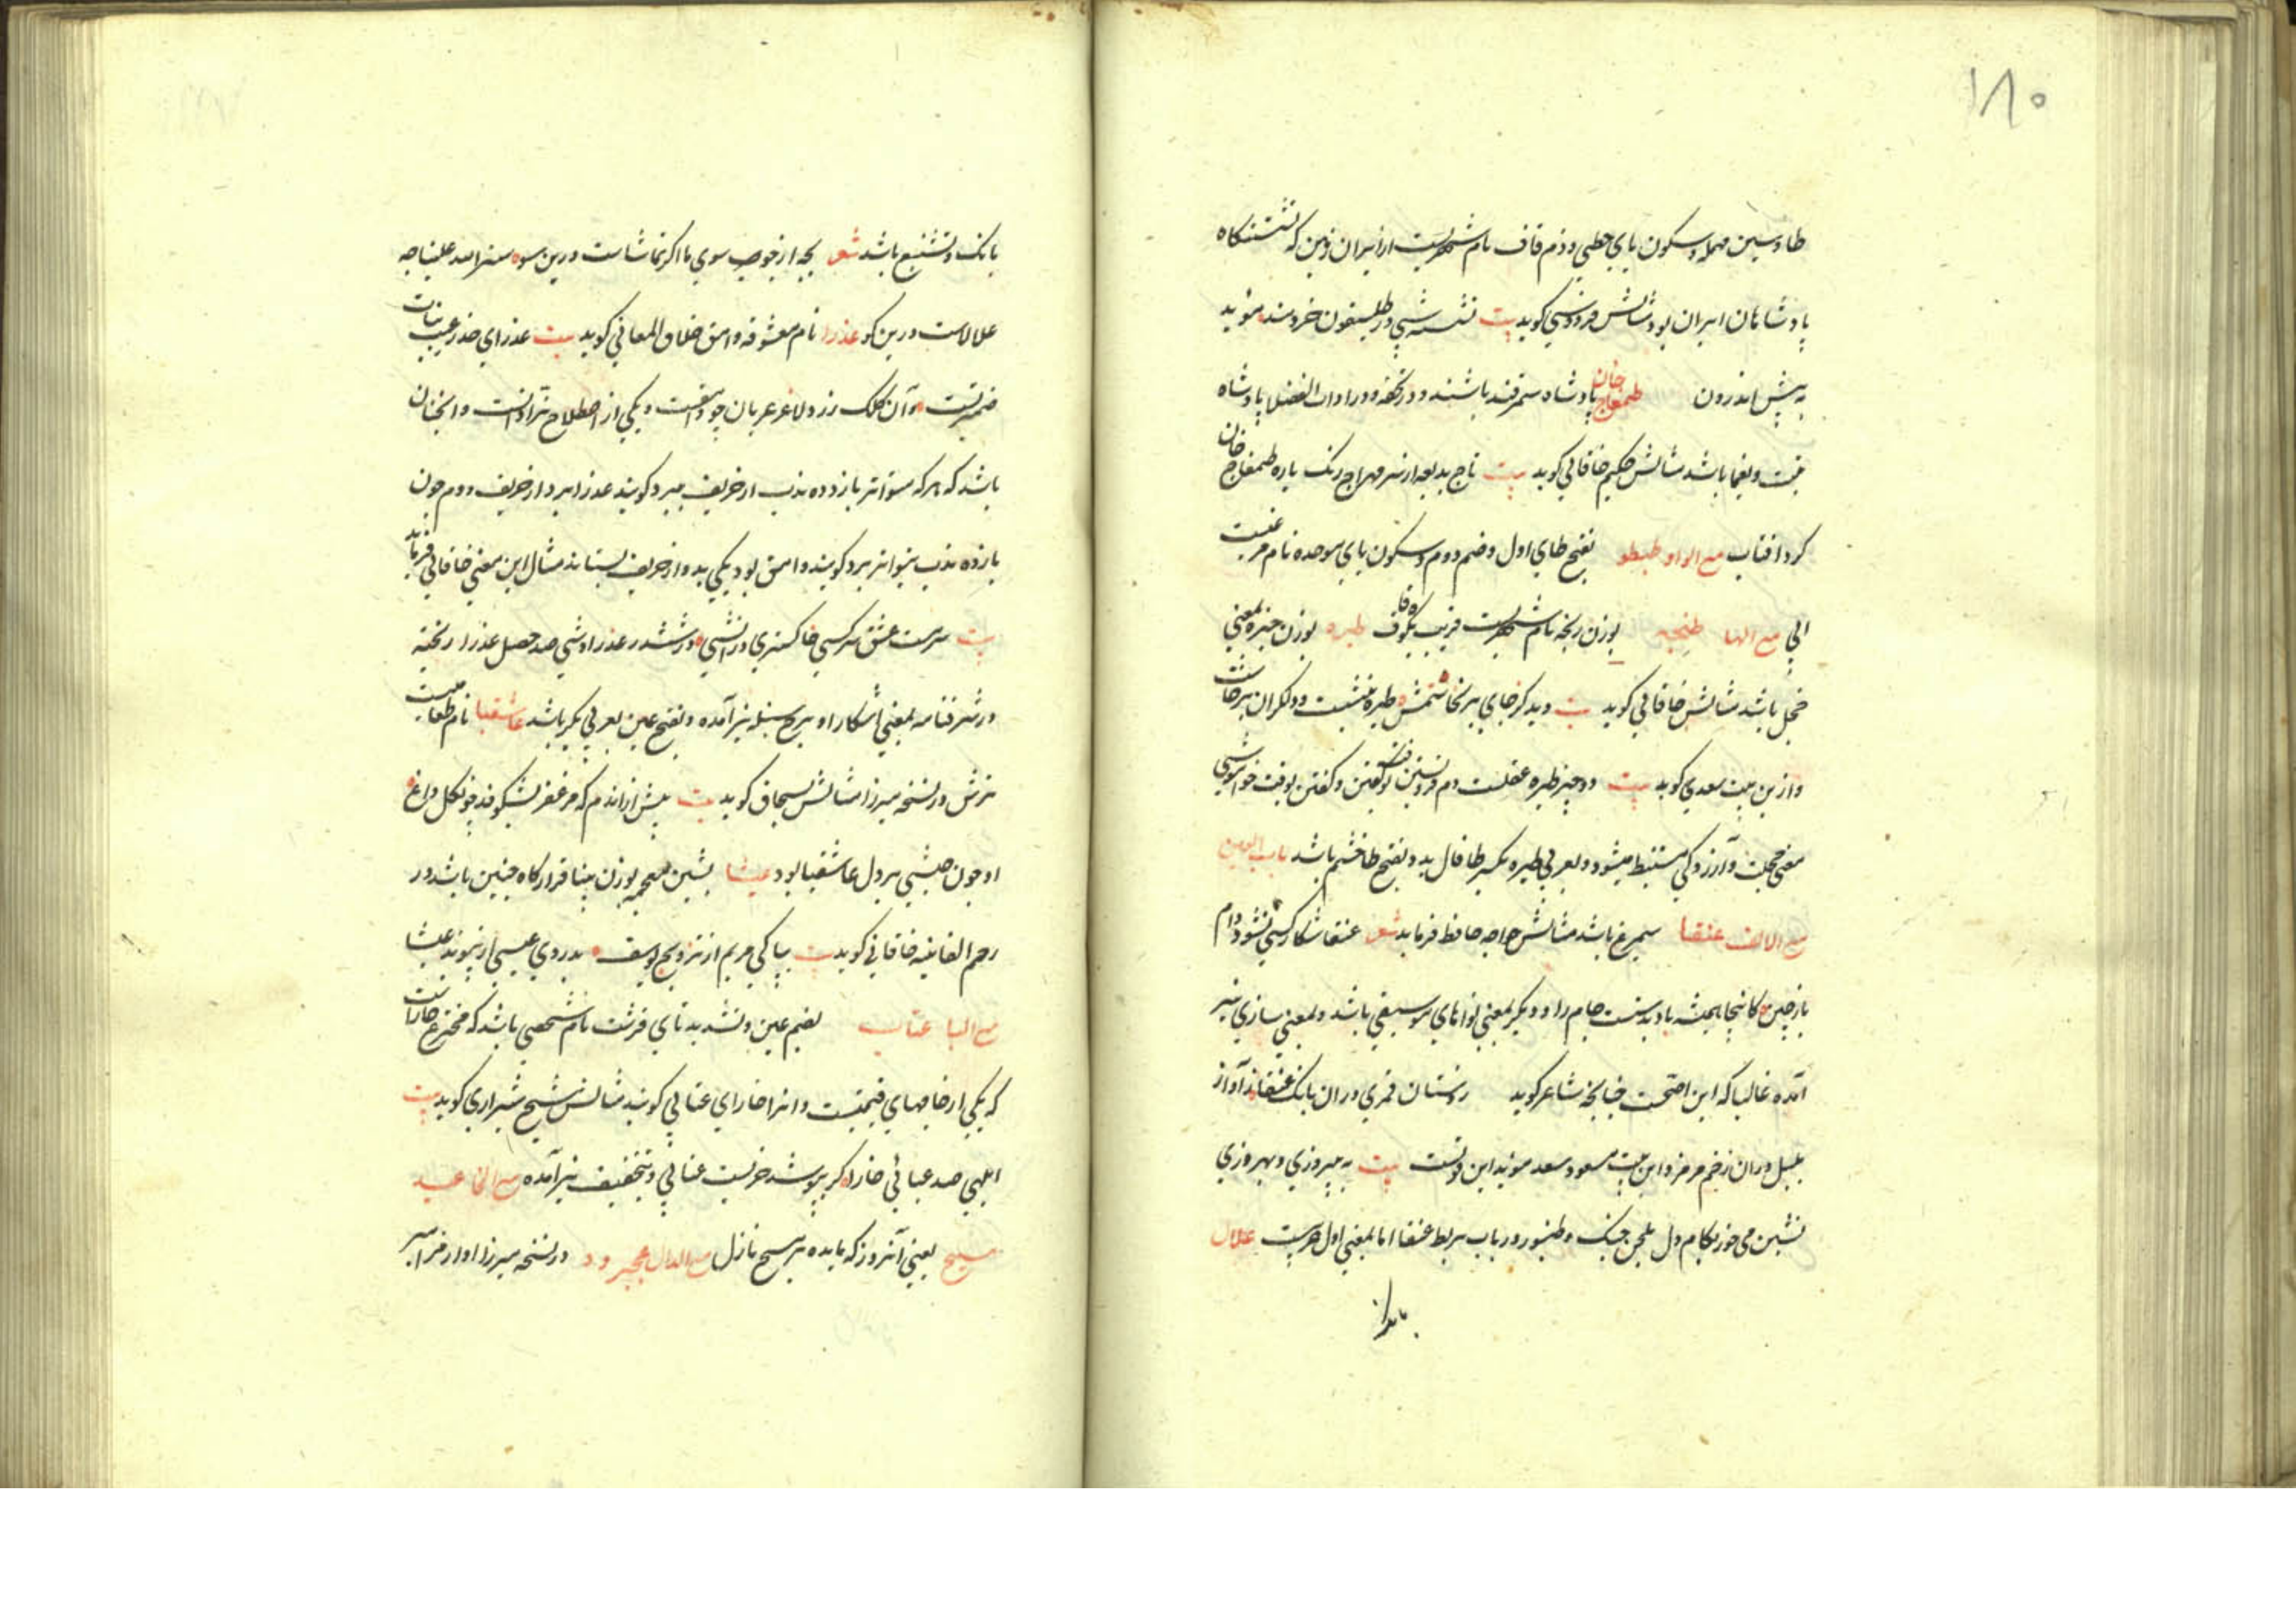 ۱۸۰
طا و سین مهمله و سکون یای حطی و ضم قاف نام شهریست از ایران زمین که نشستنکاه
پادشاهان ایران بود مثالش فردوسی کوید بیت نشسته شبی در طیسفون خردمند موبد
به پیش اندرون طمغاج خان پادشاه سمرقند باشند و در تحفه و در ادات الفضلا پادشاه
تبت و یغما باشد مثالش حکیم خاقانی کوید بیت تاج بدید از سر مهراج زنک یاره طمغاج خان
کرد افتاب مع الواو طیطو بفتح طای اول و ضم دوم و سکون یای موحده نام مرغیست
ابی مع الها طنجه بوزن رنجه نام شهریست قریب بکوه قاف طیره بوزن خیره بمعنی
خجل باشد مثالش خاقانی کوید بیت دید کز جای برنخاستمش طیره بنشست و دلکران برخاست
و ازین بیت سعدی کوید بیت دو چیز طیره عقلست دم فروبستن بوقت کفتن و کفتن بوقت خواموشی
معنی خجلت و آزردکی مستنبط میشود و بعربی طیره بکسر طا فال بد و بفتح طا خشم باشد باب العین
مع الالف عنقا سیمرغ باشد مثالش خواجه حافظ فرماید شعر عنقا شکار کس نشود دام
باز چین کانجا همیشه باد بدستست دام را و دیکر بمعنی نواهای موسیقی باشد و بمعنی سازی نیز
آمده غالبا که این اصحست چنانچه شاعر کوید ز دستان قمری دران بانک عنقا ز آواز
بلبل دران زخم مزمر و این بیت مسعود سعد موید این قولست بیت به پیروزی و بهروزی
نشین می خور بکام دل بلحن چنک و طنبور و رباب بربط عنقا اما بمعنی اول عربیست علالا
بانک و تشنیع باشد شعر
علالاست درین کو عذرا نام معشوقه وامق خلاق المعانی کوید بیت عذرای خدر غیب بنات
ضمیر تست و آن کلک زرد لاغر عریان چو وامقست و یکی از اصطلاح نرادانست و انچنان
باشد که هرکه متواتر یازده ندب از حریف ببرد کویند عذرا برد و از حریف دوم چون
یازده ندب متواتر برد کویند وامق بود یکی بدو از حریف بستاند مثال این معنی خاقانی فرماید
بیت سرمست عشق سرکشی خاکستری در آتشی در ششدر عذراوشی صد خصل عذرا ریخته
در شرفنامه بمعنی آشکارا و برج سنبله نیز آمده و بفتح عین بعربی بکر باشد عاشقبا نام طعامیست
ترش در نسخه میرزا مثالش بسحاق کوید بیت پیش ازاندم که مزعفر بشکوفد چو کل داغ
او چون حبشی بر دل عاشقبا بود عیشا بشین معجمه بوزن مینا قرارکاه جنین باشد در
رحم الغانیه خاقانی کوید بیت بپاکی مریم از تزویج یوسف بدوری عیسی از پیوند عیشا
مع البا عتاب بضم عین و تشدید تای قرشت نام شخصی باشد که مخترع خاراست
که یکی از خامهای قیمتیست و انرا خارای عتابی کویند مثالش شیخ شیرازی کوید بیت
ابلهی صد عتابی خارا کر بپوشد خریست عتابی و بتخفیف نیز آمده مع الخا عید
مسیح یعنی آنروز که مایده بر مسیح نازل مع الدال عجیرود در نسخه میرزا اواز مزامیر